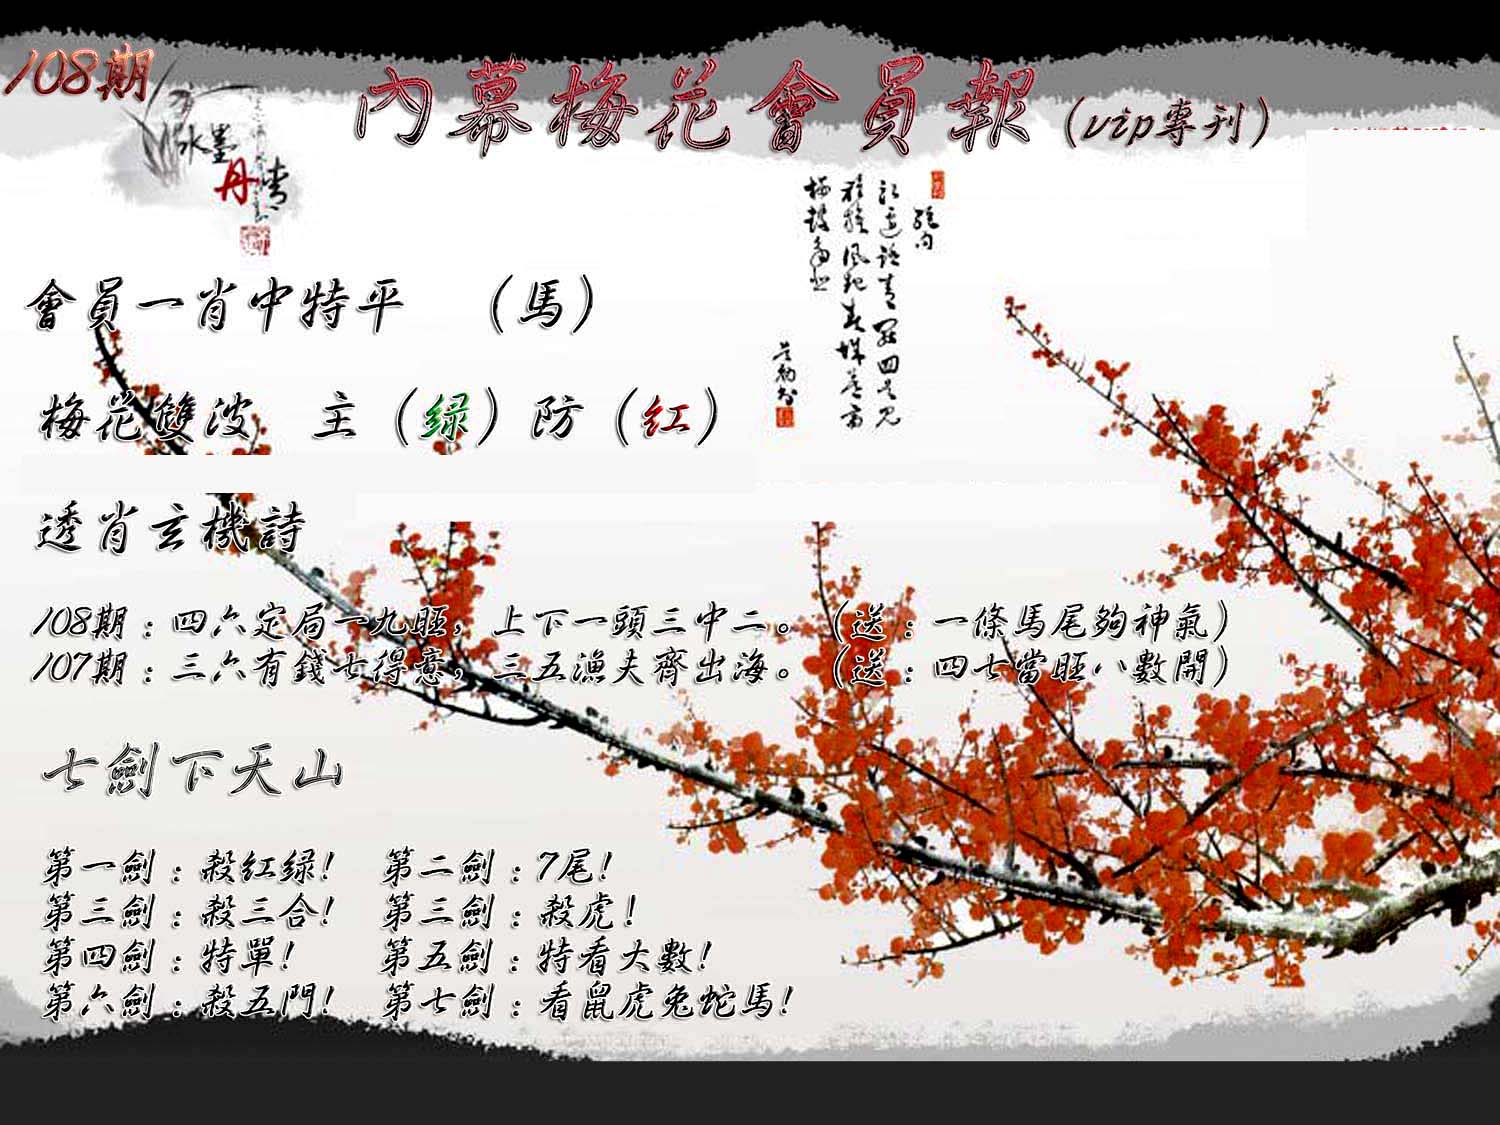 108期
內幕梅花會員報（vip專刊）
水墨
丹青
絕句
會員一肖中特平　（馬）
梅花雙波　主（绿）防（红）
透肖玄機詩
108期：四六定局一九旺，上下一頭三中二。（送：一條馬尾夠神氣）
107期：三六有錢七得意，三五漁夫齊出海。（送：四七當旺八數開）
七劍下天山
第一劍：殺红绿！　第二劍：7尾！
第三劍：殺三合！　第三劍：殺虎！
第四劍：特單！　第五劍：特看大數！
第六劍：殺五門！　第七劍：看鼠虎兔蛇馬！